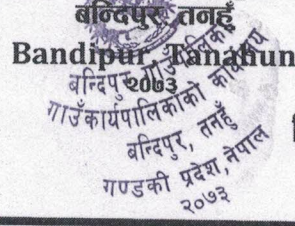 बन्दिपुर, तनहुँ
Bandipur, Tanahun
२०७३
बन्दिपुर गाउँपालिका
गाउँकार्यपालिकाको कार्यालय
बन्दिपुर, तनहुँ
गण्डकी प्रदेश, नेपाल
२०७३